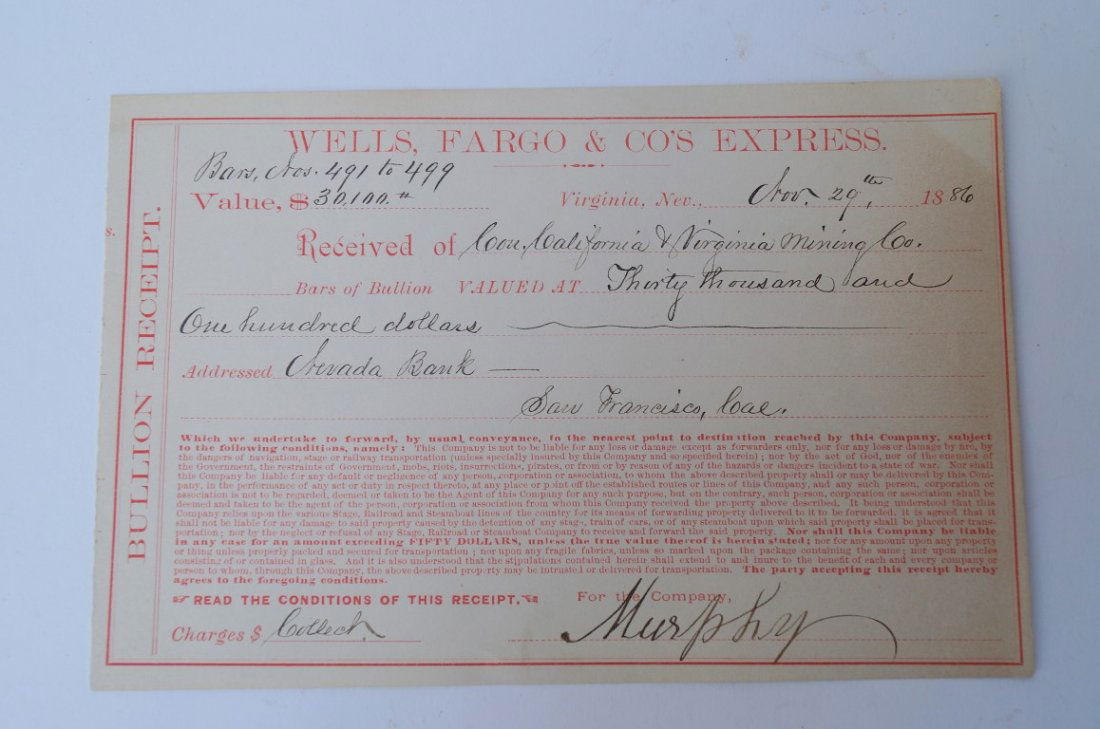 WELLS, FARGO & CO'S EXPRESS.
Bars, Nos. 491 to 499
Value, $ 30,100.00 Virginia, Nev., Nov. 29th, 1886
s.
BULLION RECEIPT.
Received of Con. California & Virginia Mining Co.
Bars of Bullion VALUED AT Thirty thousand and
One hundred dollars
Addressed Nevada Bank
San Francisco, Cal.
Which we undertake to forward, by usual conveyance, to the nearest point to destination reached by this Company, subject
to the following conditions, namely: This Company is not to be liable for any loss or damage except as forwarders only, nor for any loss or damage by fire, by
the dangers of navigation, stage or railway transportation (unless specially insured by this Company and so specified herein); nor by the act of God, nor of the enemies of
the Government, the restraints of Government, mobs, riots, insurrections, pirates, or from or by reason of any of the hazards or dangers incident to a state of war. Nor shall
this Company be liable for any default or negligence of any person, corporation or association, to whom the above described property shall or may be delivered by this Com-
pany, in the performance of any act or duty in respect thereto, at any place or point off the established routes or lines of this Company, and any such person, corporation or
association is not to be regarded, deemed or taken to be the Agent of this Company for any such purpose, but on the contrary, such person, corporation or association shall be
deemed and taken to be the agent of the person, corporation or association from whom this Company received the property above described. It being understood that this
Company relies upon the various Stage, Railroad and Steamboat lines of the country for its means of forwarding property delivered to it to be forwarded, it is agreed that it
shall not be liable for any damage to said property caused by the detention of any stage, train of cars, or of any steamboat upon which said property shall be placed for trans-
portation; nor by the neglect or refusal of any Stage, Railroad or Steamboat Company to receive and forward the said property. Nor shall this Company be liable
in any case for an amount exceeding FIFTY DOLLARS, unless the true value thereof is herein stated; nor for any amount upon any property
or thing unless properly packed and secured for transportation; nor upon any fragile fabrics, unless so marked upon the package containing the same; nor upon articles
consisting of or contained in glass. And it is also understood that the stipulations contained herein shall extend to and inure to the benefit of each and every company or
person to whom, through this Company, the above described property may be intrusted or delivered for transportation. The party accepting this receipt hereby
agrees to the foregoing conditions.
READ THE CONDITIONS OF THIS RECEIPT.
For the Company,
Charges $ Collect
Murphy